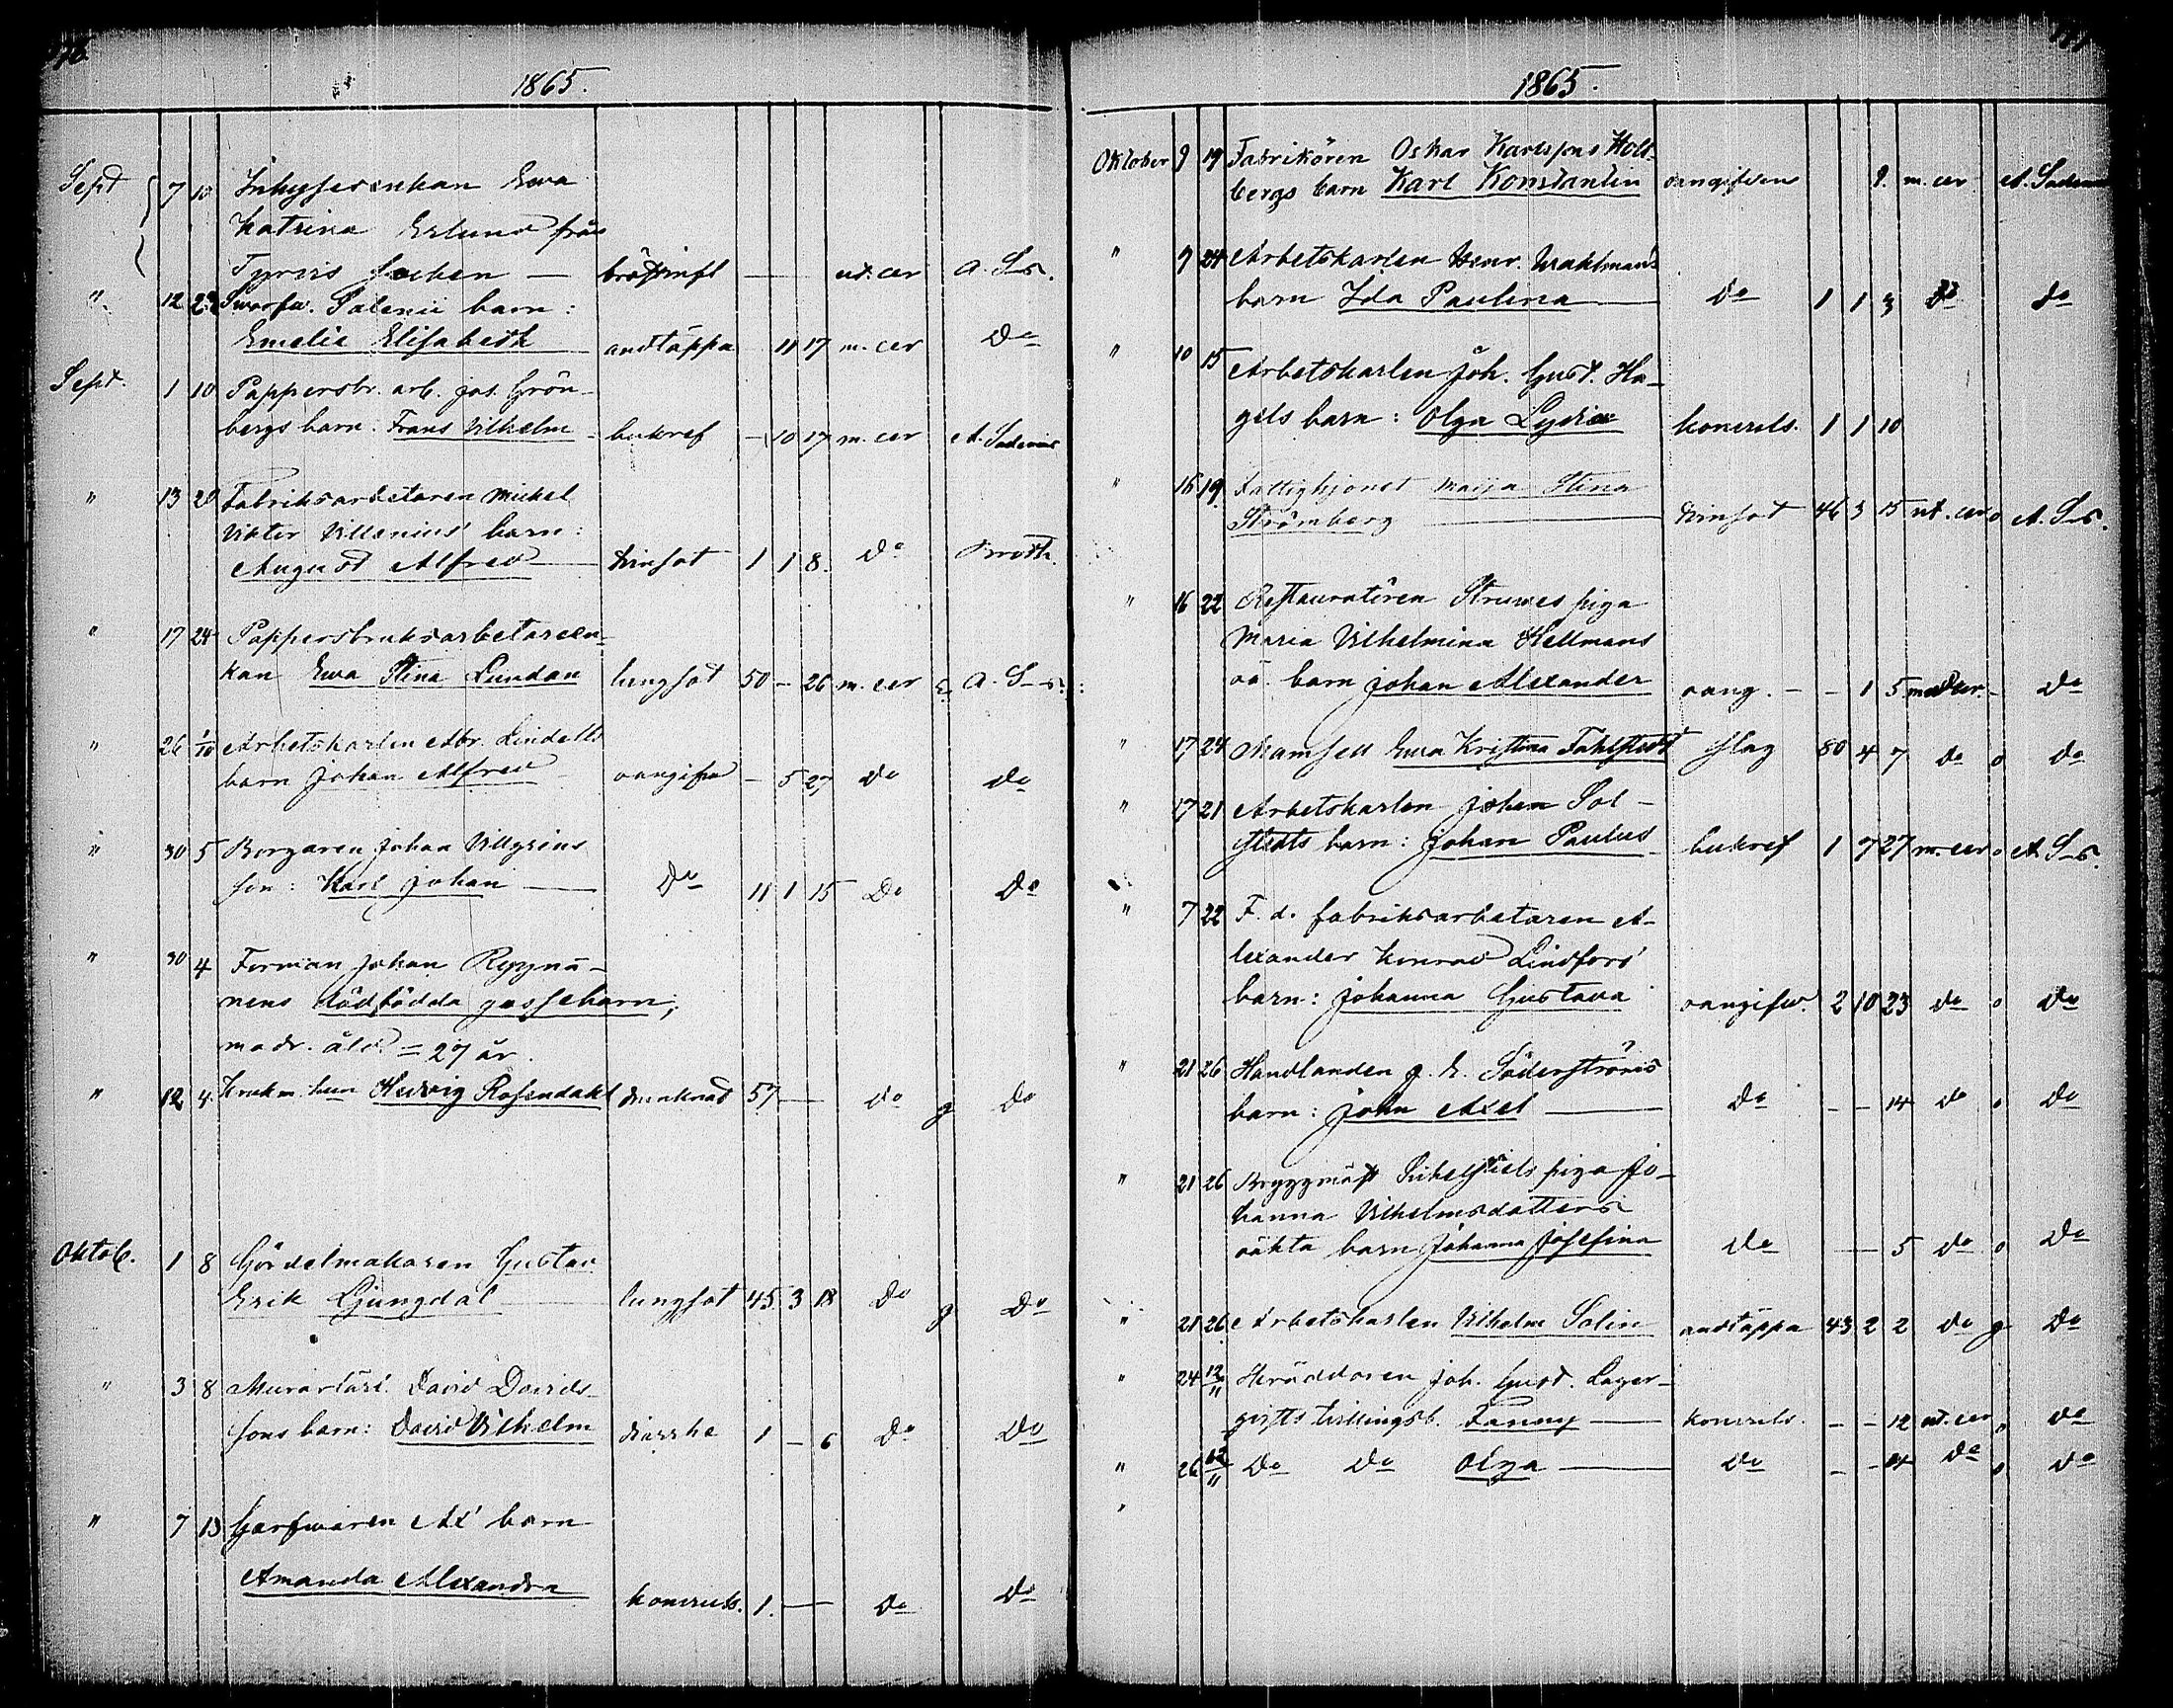 1865.
Sept 7 10 Inhyseenkan Ewa
Katrina Eklund från
Tyrvis socken — ut. cer A. S-s.
" 12 23 Swarfw. Salenii barn:
Emelie Elisabeth andtäppa 11 17 m. cer Do
Sept. 1 10 Pappersbr. arb. Jos. Grön-
bergs barn: Frans Vilhelm bukref — 10 17 m. cer A. Sadenius
" 13 20 Fabriksarbetaren Mickel
Viktor Villenius' barn:
August Alfred tvinsot 1 1 8. Do
" 17 24 Pappersbruksarbetareen-
kan Ewa Stina Lundan lungsot 50 — 26 m. cer A. S-s.
" 26 1/10 Arbetskarlen Abr. Lindells
barn Johan Alfred oangifw — 5 27 Do Do
" 30 5 Borgaren Johan Villgrens
son: Karl Johan — Do 11 1 15 Do Do
" 30 4 Forman Johan
nens dödfödda gossebarn;
modr. åld. = 27 år.
" 12 4 Hedvig Rosendahl drunknad 57 — Do g Do
Oktob. 1 8 Gördelmakaren Gustav
Erik Ljungdal lungsot 45 3 18 Do g Do
" 3 8 Murarlärl. David Davids-
sons barn: David Vilhelm diarrhe 1 — 6 Do Do
" 7 13 Garfwaren Ax' barn
Amanda Alexandra konvuls. 1. — Do Do
1865.
Oktober 9 19 Fabrikören Oskar Karlssons Holl-
bergs barn Karl Konstantin oangifven 9. m. cer A. Sadenius
" 9 24 Arbetskarlen Henr. Wahlmans
barn Ida Paulina — Do 1 1 3 Do Do
" 10 15 Arbetskarlen Joh. Gust. Ha-
gels barn: Olga Lydia konvuls. 1 1 10
" 16 19 Fattighjonet Maija Stina
Strömberg — tvinsot 46 3 15 ut. cer o A. S-s.
" 16 22 Restauratören Struves piga
Maria Vilhelmina Hellmans
oä. barn Johan Alexander oang. — — 1 5 med cer. — Do
" 17 24 Mamsell Ewa Kristina Fahlstedt slag 80 4 7 Do o Do
" 17 21 Arbetskarlen Johan Sal-
stedts barn: Johan Paulus bukref 1 7 27 m. cer o A. S-s.
" 7 22 F. d. fabriksarbetaren A-
lexander Konrad Lindfors'
barn: Johanna Gustava oangifw. 2 10 23 Do o Do
" 21 26 Handlanden J. E. Söderströms
barn: John Axel — Do — — 14 Do o Do
" 21 26 Bryggmäst piga Jo-
hanna Vilhelmsdotters
oäkta barn Johanna Josefina Do — 5 Do o Do
" 21 26 Arbetskarlen Vilhelm Salin andtäppa 43 2 2 Do g Do
" 24 12/11 Skräddaren Joh. Gust. Lager-
gvists tvillingsb. Fanny — konvuls. — — 12 ut. cer o Do
" 26 12/11 Do Do Olga — Do — — 14 Do o Do